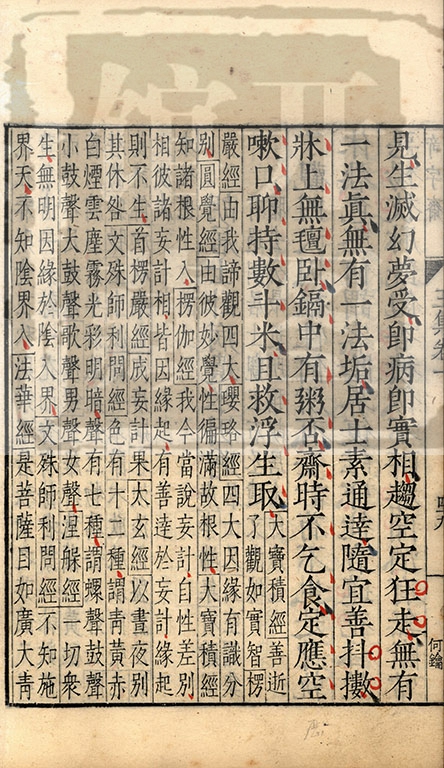 見生滅幻夢受卽病卽實相趨空定狂走無有
一法眞無有一法垢居士素通達隨宜善抖擻
牀上無氊臥鎘中有粥否齋時不乞食定應空
嗽口聊持數斗米且救浮生取
大寶積經善逝
了觀如實智楞
嚴經由我諦觀四大瓔珞經四大因緣有識分
別圓覺經由彼妙覺性徧滿故根性大寶積經
知諸根性入楞伽經我今當說妄計自性差別
相彼諸妄計相皆因緣起有善達於妄計緣起
則不生首楞嚴經成妄計果大玄經以晝夜別
其休咎文殊師利問經色有十二種謂靑黃赤
白煙雲塵霧光彩明暗聲有七種謂螺聲鼓聲
小鼓聲大鼓聲歌聲男聲女聲涅槃經一切衆
生無明因緣於陰入界文殊師利問經不知施
界天不知陰界入法華經是菩薩目如廣大靑
何鑰